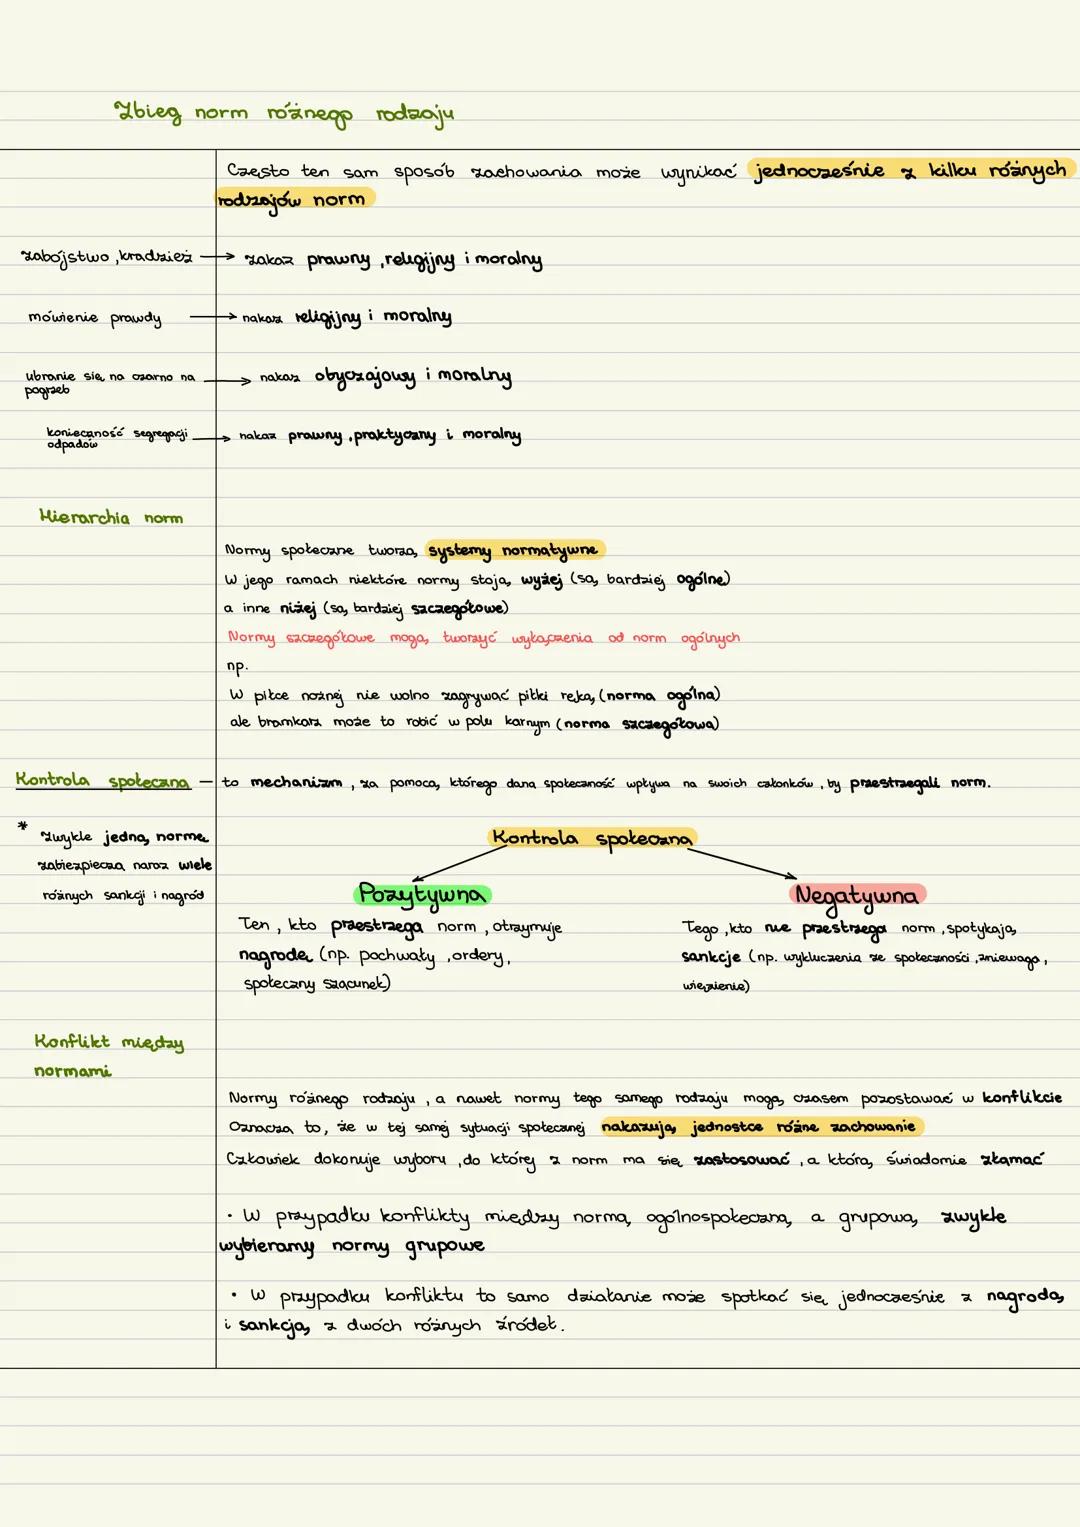 Zbieg norm różnego rodzaju
Często ten sam sposób zachowania może wynikać jednocześnie z kilku różnych
rodzajów norm
zabójstwo, kradzież → zakaz prawny, religijny i moralny
mówienie prawdy → nakaz religijny i moralny
ubranie się na czarno na
pogrzeb → nakaz obyczajowy i moralny
konieczność segregacji
odpadów → nakaz prawny, praktyczny i moralny
Hierarchia norm
Normy społeczne tworzą systemy normatywne
W jego ramach niektóre normy stoją wyżej (są bardziej ogólne)
a inne niżej (są bardziej szczegółowe)
Normy szczegółowe mogą tworzyć wyłączenia od norm ogólnych
np.
W piłce nożnej nie wolno zagrywać piłki ręką (norma ogólna)
ale bramkarz może to robić w polu karnym (norma szczegółowa)
Kontrola społeczna – to mechanizm, za pomocą którego dana społeczność wpływa na swoich członków, by przestrzegali norm.
* Zwykle jedną normę
zabezpiecza naraz wiele
różnych sankcji i nagród
Kontrola społeczna
Pozytywna
Ten, kto przestrzega norm, otrzymuje
nagrodę (np. pochwały, ordery,
społeczny szacunek)
Negatywna
Tego, kto nie przestrzega norm, spotykają
sankcje (np. wykluczenia ze społeczności, zniewaga,
więzienie)
Konflikt między
normami
Normy różnego rodzaju, a nawet normy tego samego rodzaju mogą czasem pozostawać w konflikcie
Oznacza to, że w tej samej sytuacji społecznej nakazują jednostce różne zachowanie
Człowiek dokonuje wyboru, do której z norm ma się zastosować, a którą świadomie złamać
• W przypadku konflikty między normą ogólnospołeczną a grupową zwykle
wybieramy normy grupowe
• W przypadku konfliktu to samo działanie może spotkać się jednocześnie z nagrodą
i sankcją z dwóch różnych źródeł.